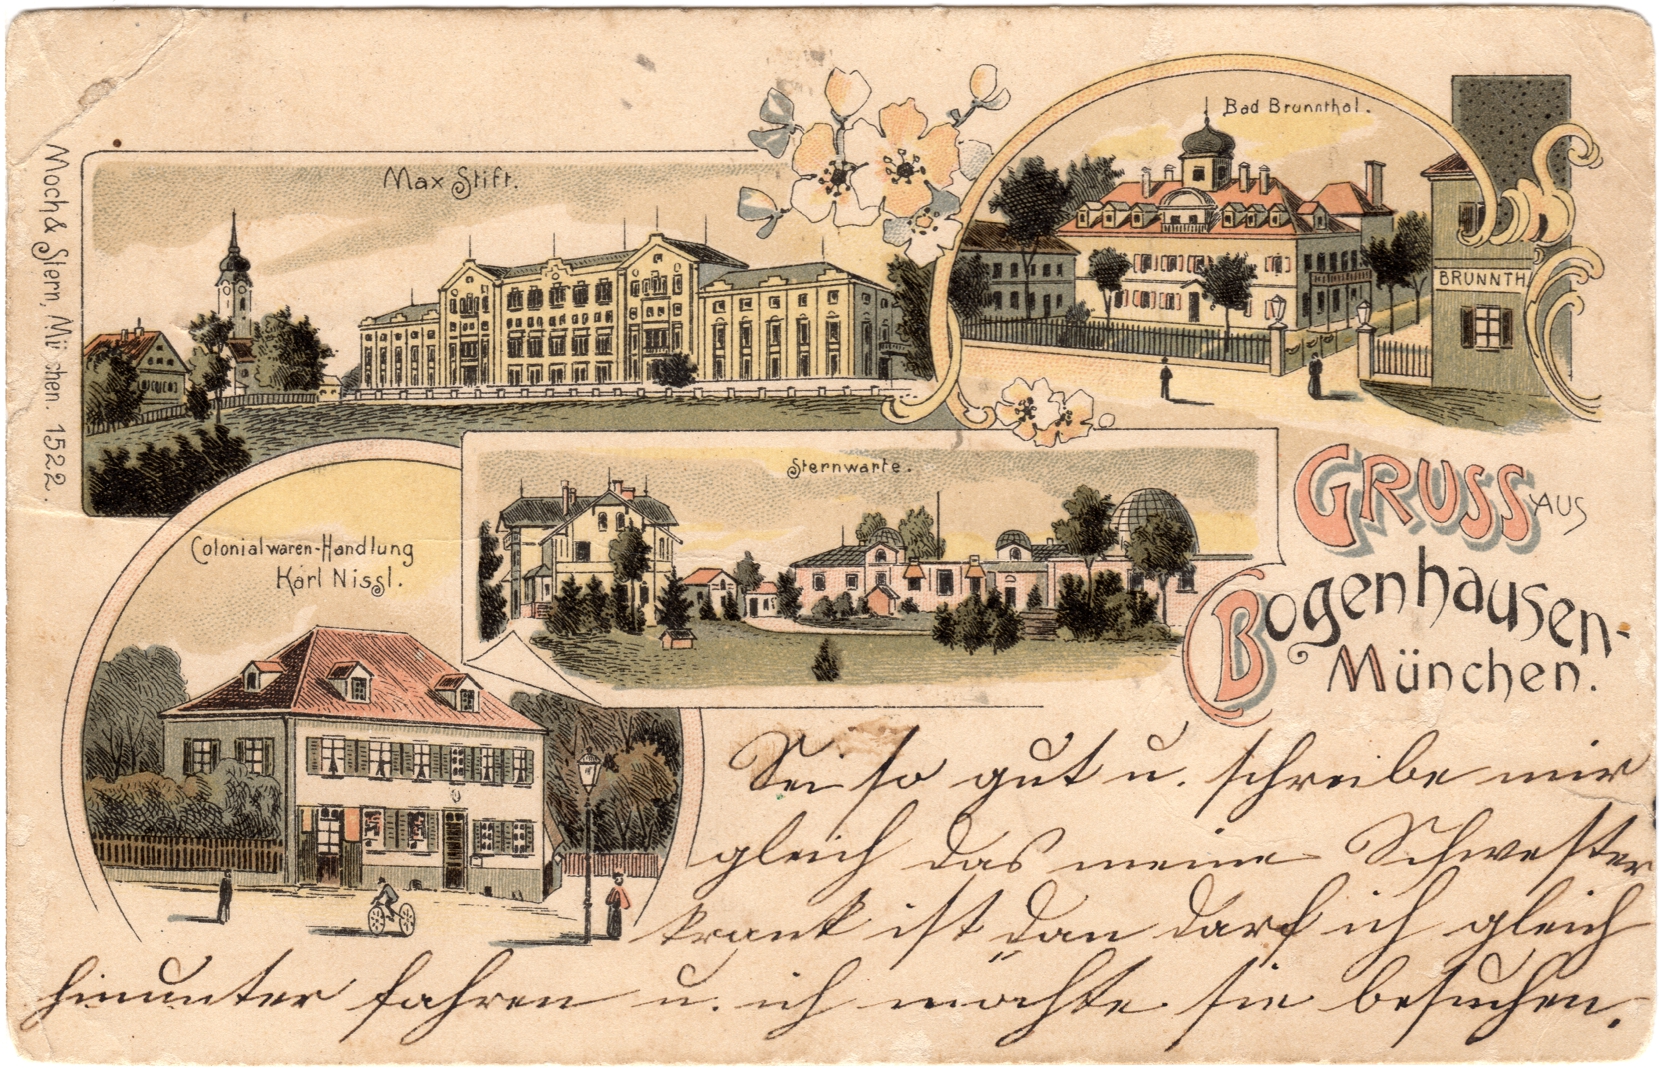 Moch & Stern, München. 1522.
Max Stift.
Bad Brunnthal.
BRUNNTH
Sternwarte.
Colonialwaren-Handlung
Karl Nissl.
GRUSS AUS
Bogenhausen-
München.
Sei so gut u. schreibe mir
gleich das meine Schwester
krank ist dan darf ich gleich
hinunter fahren u. ich möchte sie besuchen.